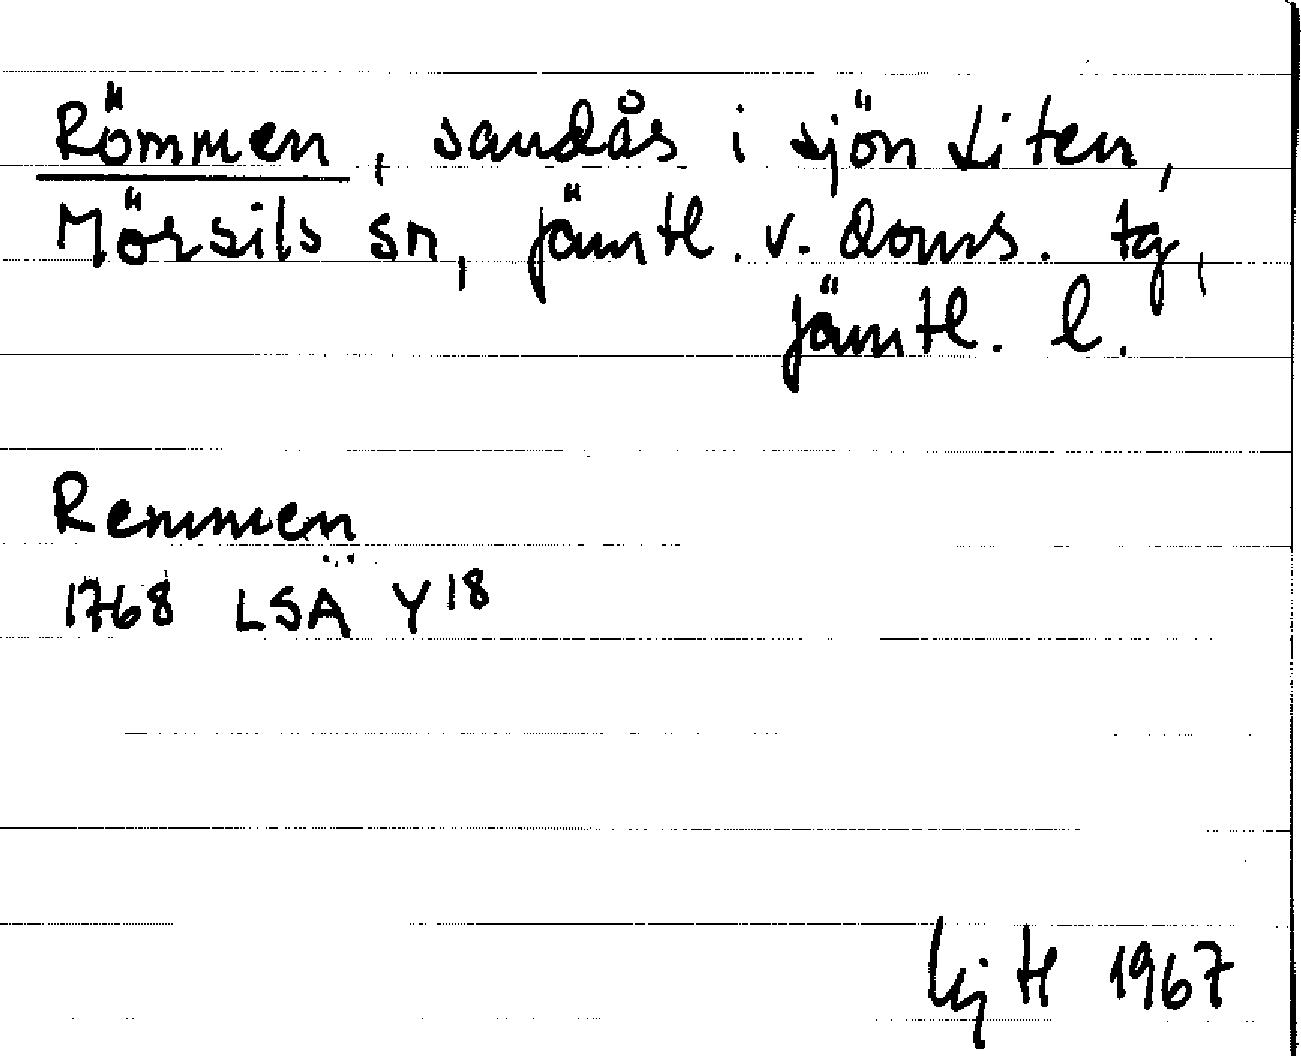 Römmen, sandås i sjön Liten,
Mörsils sn, Jämtl. v. doms. tg,
Jämtl. l.
Remmen
1768 LSÄ Y18
1967